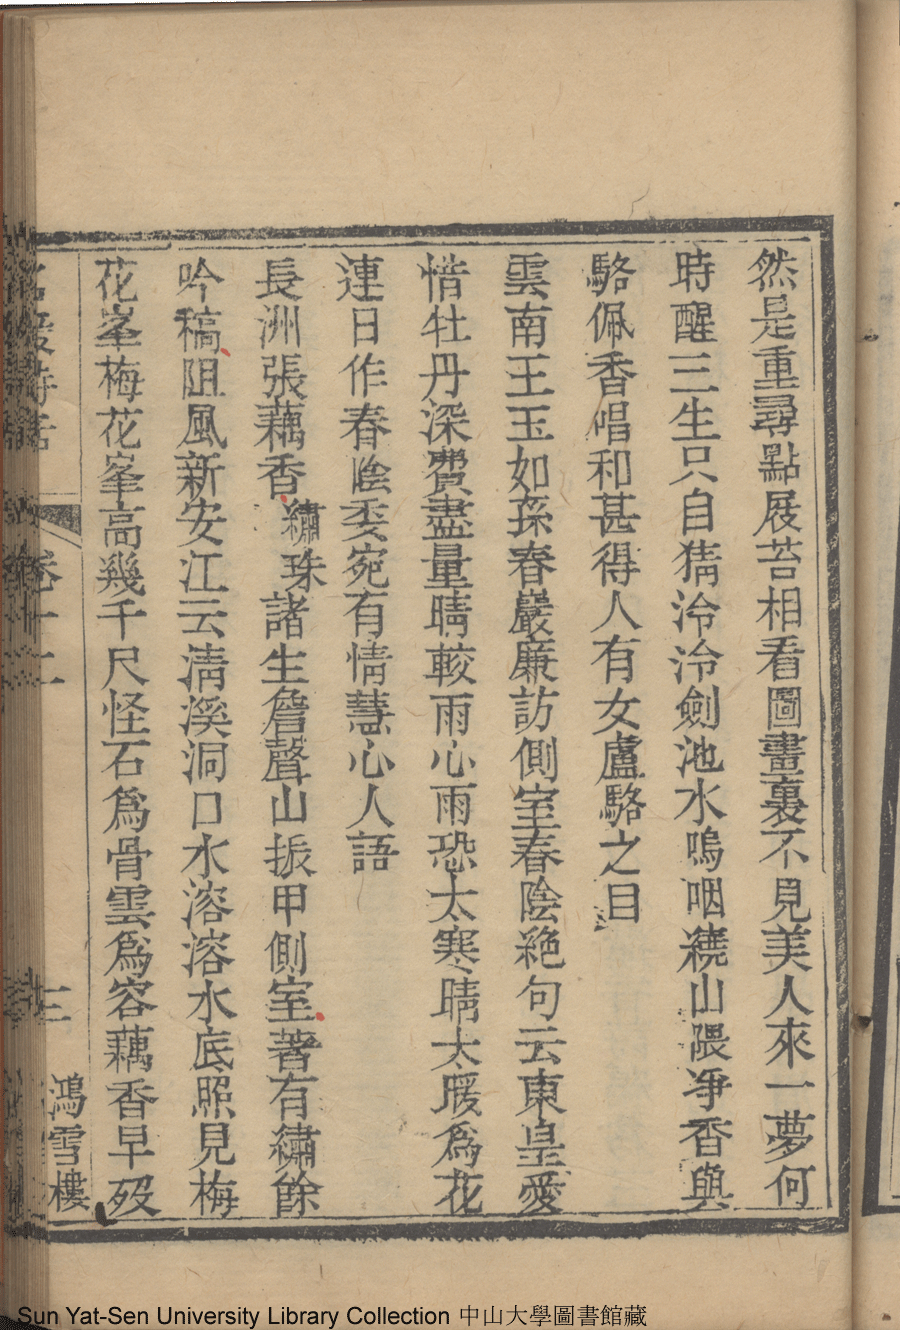 然是重尋點屐苔相看圖畫裏不見美人來一夢何
時醒三生只自猜泠泠劍池水嗚咽繞山隈淨香與
駱佩香唱和甚得人有女盧駱之目
雲南王玉如孫春巖廉訪側室春陰絕句云東皇愛
惜牡丹深費盡量晴較雨心雨恐太寒晴太暖爲花
連日作春陰委宛有情慧心人語
長洲張藕香繡珠諸生詹聲山振甲側室著有繡餘
吟稿阻風新安江云淸溪洞口水溶溶水底照見梅
花峯梅花峯高幾千尺怪石爲骨雲爲容藕香早歿
名媛詩話 卷十二 三 鴻雪樓
Sun Yat-Sen University Library Collection 中山大學圖書館藏